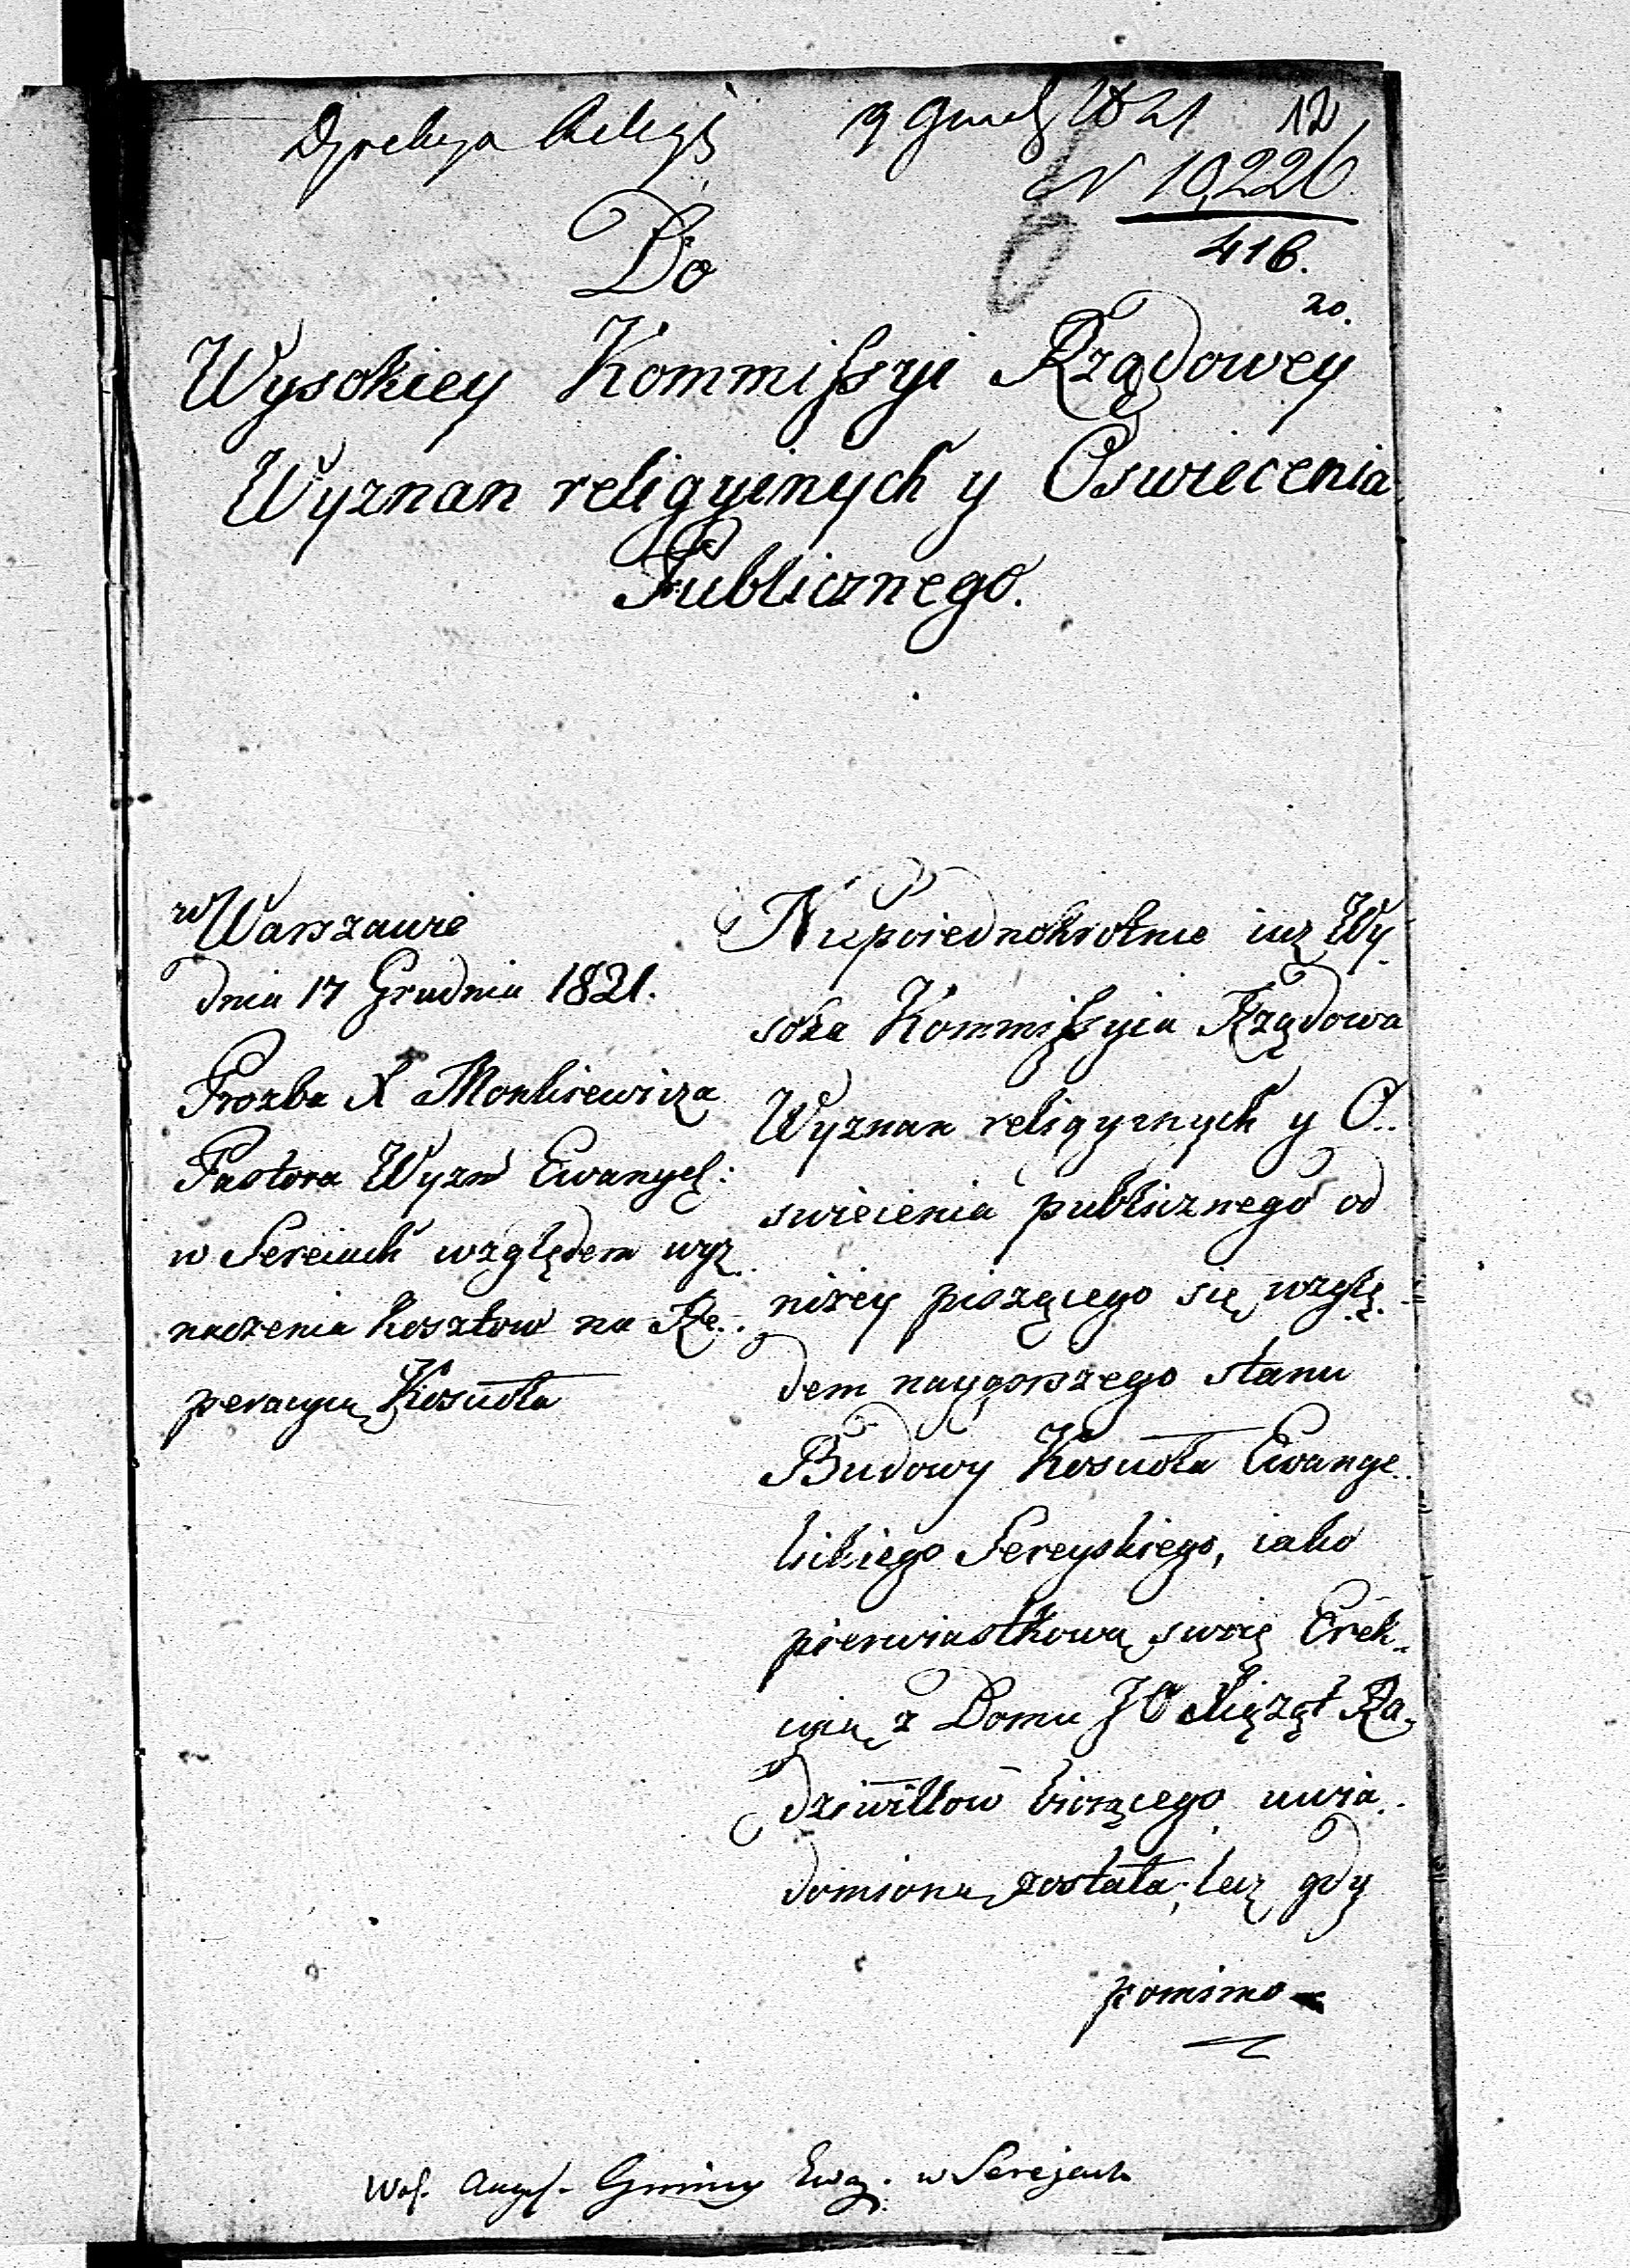 Dyrekcya Religij 19 Grud 1821 12
N 10,226
416.
20.
Do
Wysokiey Kommissyi Rządowey
Wyznan religyinych y Oswiecenia
Publicznego.
w Warszawie
dnia 17 Grudnia 1821.
Prozba X Monkiewicza
Pastora Wyzn Ewangel:
w Sereiach względem wyz..
naczenia kosztow na Re..
peracyią Kosciola
Niepoiednokrotnie iuz Wy..
soka Kommissyia Rządowa
Wyznan religyinych y O..
swiecenia publicznego od
niżey piszącego się wzglę..
dem naygorszego stanu
Budowy Kosciola Ewange..
lickiego Sereyskiego, iako
pierwiastkową swoię Erek..
cyią z Domu J O Xiążąt Ra..
dziwillow biorącego uwia..
domioną została; lecz gdy
pomimo
Woj. August. Gminy Ewg. w Serejach